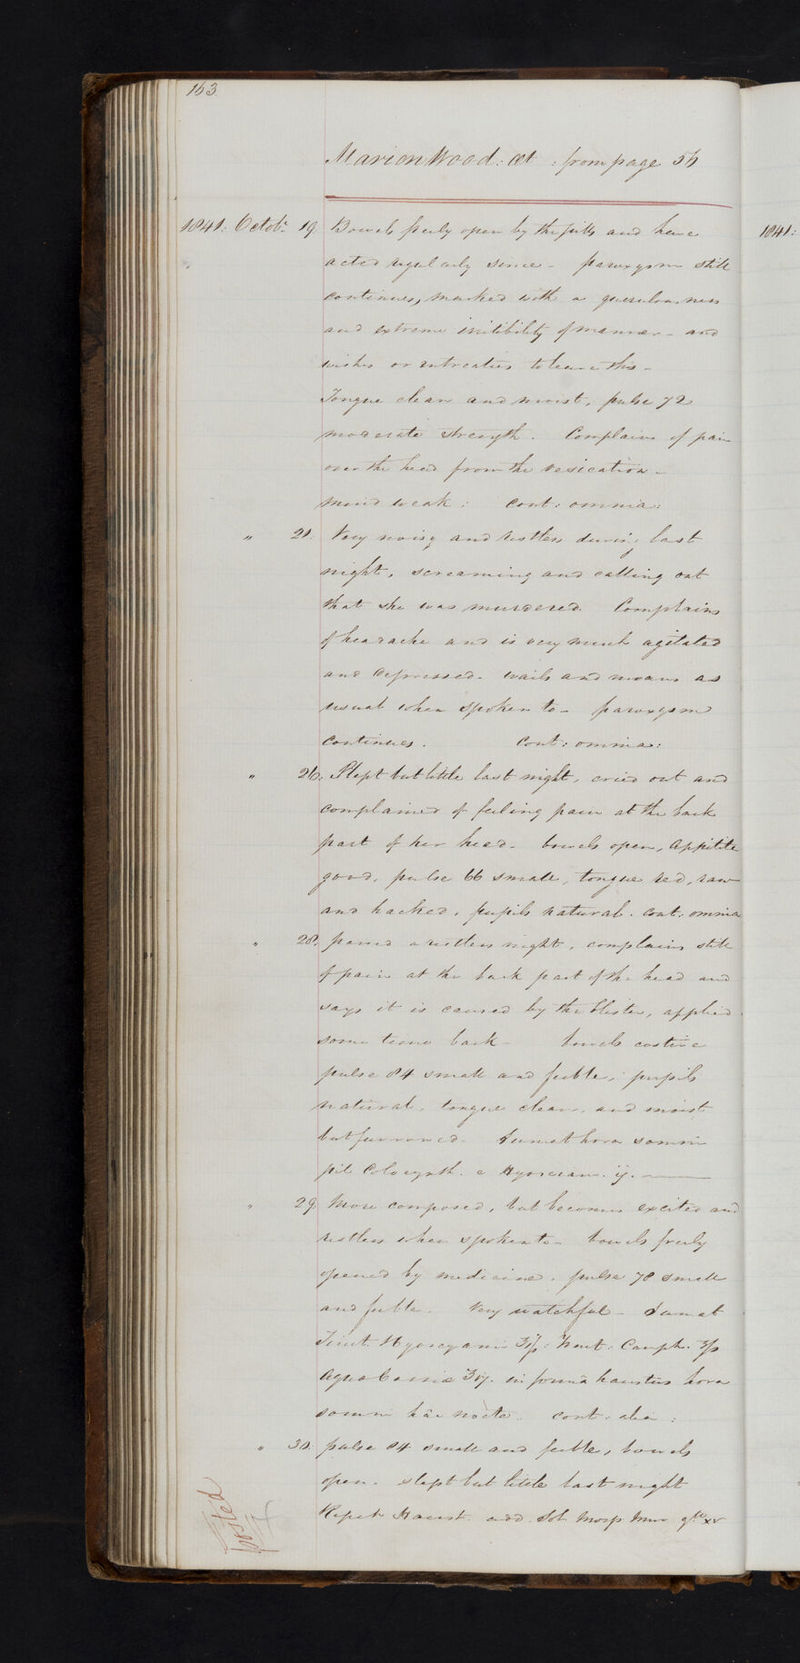 163
Marion Wood: æt : from page 56
1841: Octob: 19 Bowels freely open by the pills and have
1841:
acted regularly since - paroxysm still
continues, marked with a querulousness
and extreme irritibility of manner - and
wishes or intreaties to leave this -
Tongue clean and moist, pulse 72
moderate strength. Complains of pain
over the head from the vesication -
mind weak: Cont: omnia:
" 21. Very noisy and restless during last
night, screaming and calling out
that she was murdered. Complains
of headache and is very much agitated
and depressed - wails and moans as
usual when spoken to - paroxysm
continues. Cont: omnia:
" 26. Slept but little last night, cried out and
complained of feeling pain at the back
part of her head - bowels open, appitite
good, pulse 66 small, tongue red, raw
and hacked, pupils natural. Cont: omnia
" 28. passed a restless night, complains still
of pain at the back part of the head and
says it is caused by the blister, applied
some time back - bowels costive
pulse 84 small and feeble, pupils
natural, tongue clean, and moist
but furrowed - Sumat hora somni
pil Colocynth. c Hyosciam. ij.
" 29 More composed, but becomes excited and
restless when spoken to - bowels freely
opened by medicine. pulse 78 small
and feeble. Very watchful - Sumat
Tinct. Hyoscyami ʒij. Camph. ʒfs
Aqua Cassiæ ʒij. in forma haustus hora
somni hâc nocte. Cont: alia:
" 30. pulse 84 small and feeble, bowels
open - slept but little last night
Repet Haust. add. Sol. Morp. Mur. gtt xv
posted